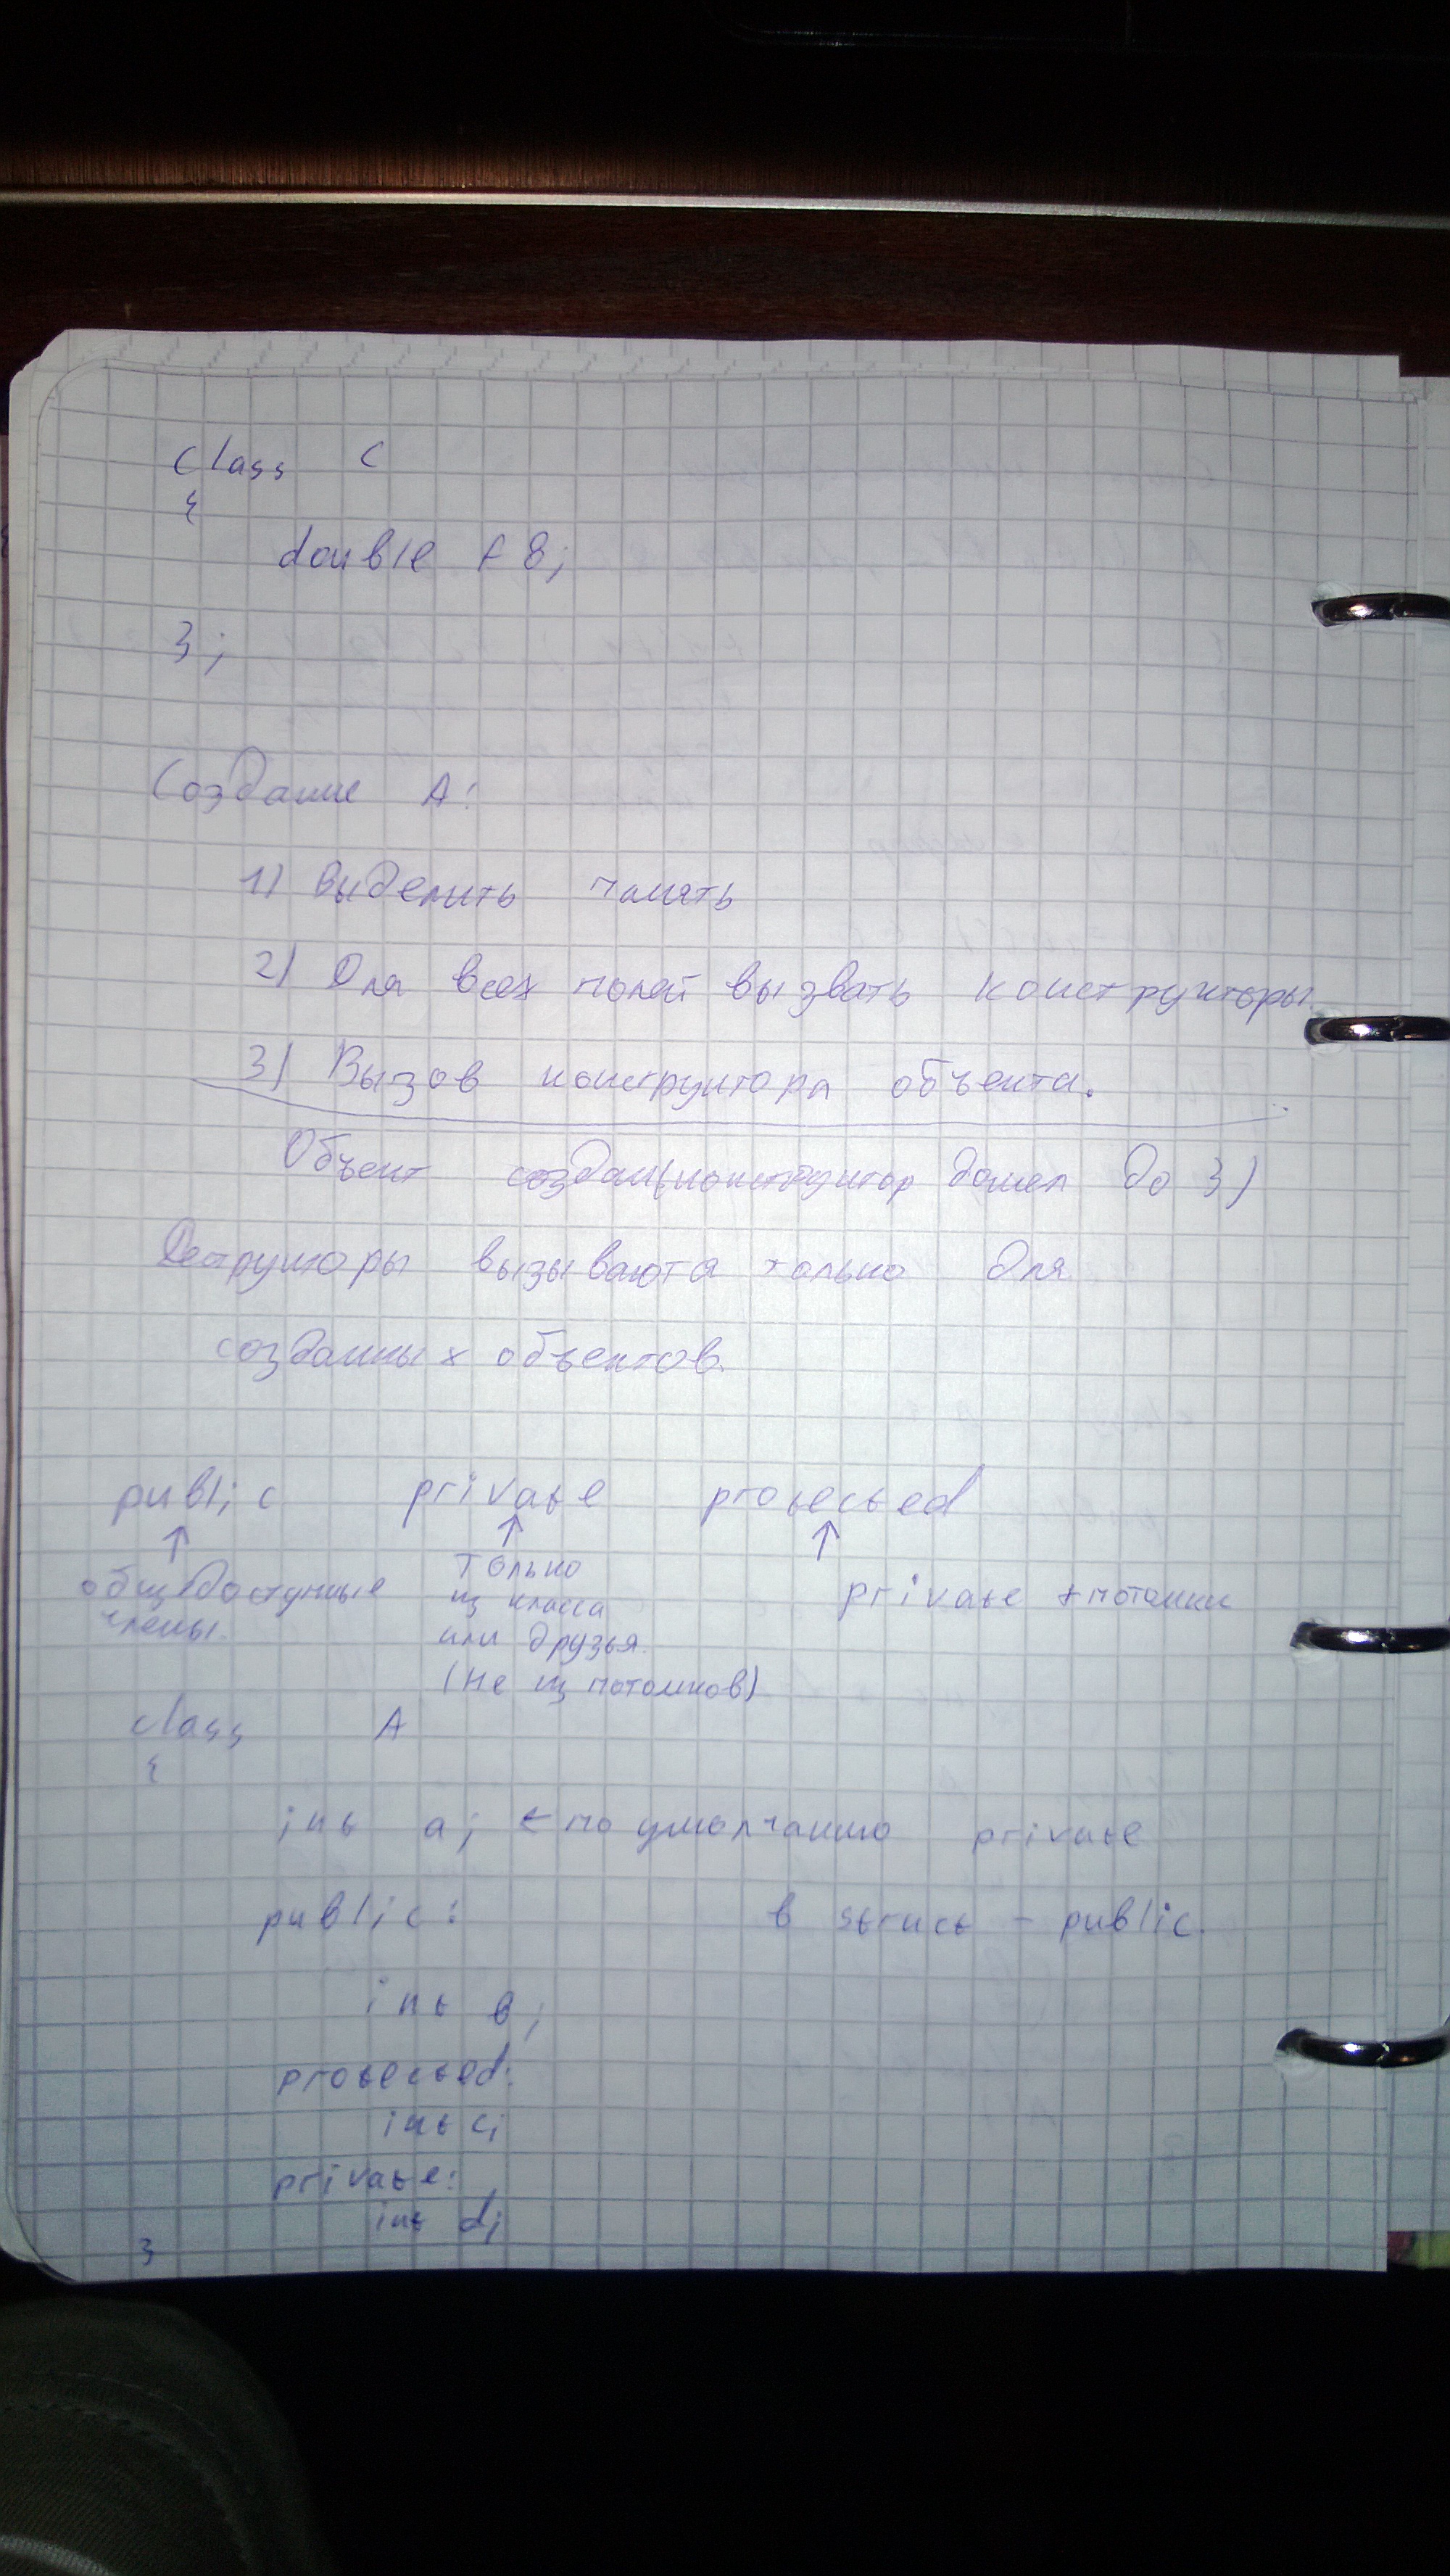 class C
{
double f8;
};
Создание A:
1) Выделить память
2) Для всех полей вызвать конструкторы
3) Вызов конструктора объекта.
Объект создан(конструктор дошел до 3)
Деструкторы вызываются только для
созданных объектов.
public private protected
↑ ↑ ↑
общедоступные члены.
только
из класса
или друзья.
(не из потомков)
private + потомки
class A
{
int a; ← по умолчанию private
public: в struct - public.
int b;
protected:
int c;
private:
int d;
}